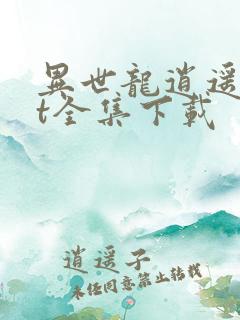 異世龍逍遥
t全集下載
逍遥子
未经同意禁止转载